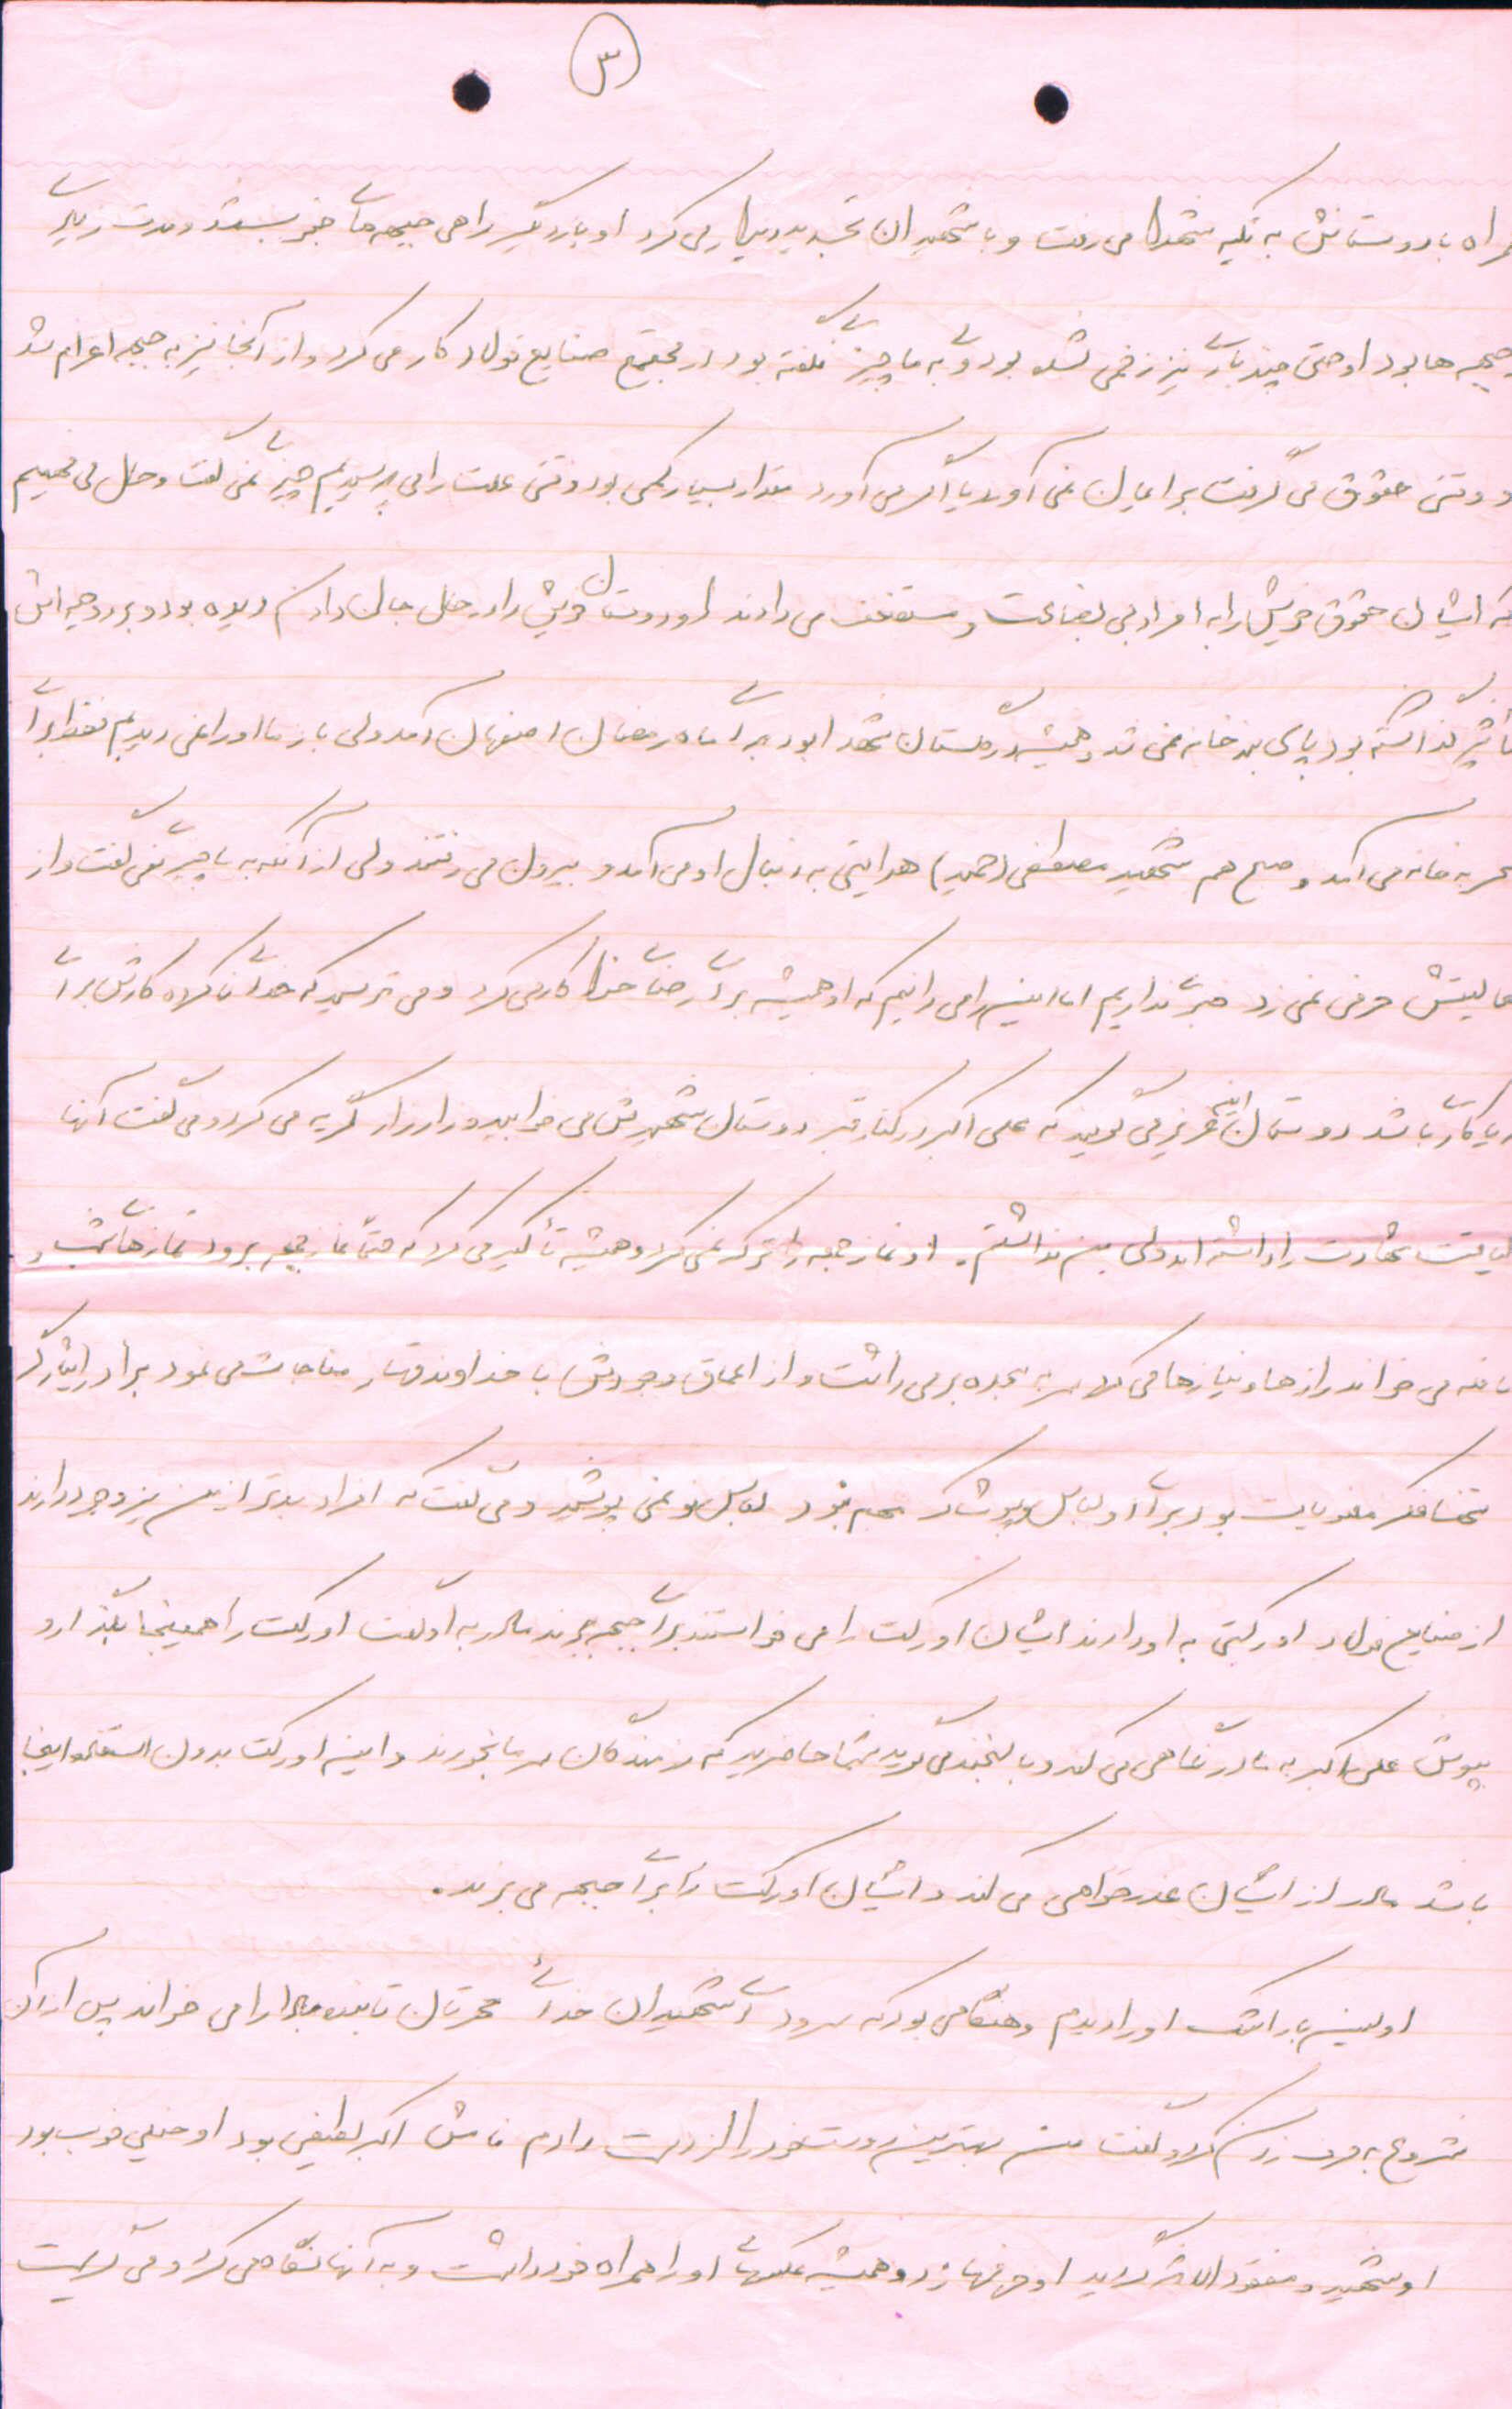 ۳
همراه با دوستانش به تکیه شهدا می رفت و با شهیدان تجدید دیدار می کرد او بار دیگر راهی جبهه های جنوب شد و مدت زیادی
جبهه ها بود او حتی چند باری نیز زخمی شده بود و به ما چیزی نگفته بود در مجتمع صنایع فولاد کار می کرد و از آنجا نیز به جبهه اعزام شد
و وقتی حقوق می گرفت برایمان نمی آورد یا اگر می آورد مقدار بسیار کمی بود وقتی علت را می پرسیدیم چیزی نمی گفت و حال می فهمیم
که ایشان حقوق خویش را به افراد بی بضاعت و مستضعف می دادند او دوستان خویش را در حال جان دادن دیده بود و بر روحیه اش
تأثیر گذاشته بود پای بند خانه نمی شد و همیشه در گلستان شهدا بود برای ماه رمضان اصفهان آمد ولی باز ما او را نمی دیدیم فقط برای
سحر به خانه می آمد و صبح هم شهید مصطفی (حمید) هدایتی به دنبال او می آمد و بیرون می رفتند ولی از آنکه به ما چیزی نمی گفت و از
فعالیتش حرفی نمی زد خبری نداریم اما این را می دانیم که او همیشه برای رضای خدا کار می کرد و می ترسید که خدای نا کرده کارش برای
ریا کاری باشد دوستان این عزیز می گویند که علی اکبر در کنار قبر دوستان شهیدش می خوابید و زار زار گریه می کرد و می گفت آنها
لیاقت شهادت را داشته اند ولی من نداشتم. او نماز جمعه را ترک نمی کرد و همیشه تأکید می کرد که حتماً نماز جمعه بروید نمازهای شب و
نافله می خواند راز ها و نیازها می کرد سر به سجده بر می داشت و از اعماق وجودش با خداوند قهار مناجات می نمود برادر ایثارگر
تنها فکر معنویات بود برای او لباس و پوشاک مهم نبود لباس نو نمی پوشید و می گفت که افراد بدتر از من نیز وجود دارند
از صنایع فولاد اورکتی به او دادند ایشان اورکت را می خواستند برای جبهه ببرند مادر به او گفت اورکت را همینجا بگذار و
بپوش علی اکبر به مادر نگاهی می کند و با لبخند می گوید شما حاضرید که رزمندگان سرما بخورند و این اورکت بدون استفاده اینجا
باشد مادر از ایشان عذرخواهی می کند و ایشان اورکت را برای جبهه می برند.
اولین بار اشک او را دیدم و هنگامی بود که سرود ای شهیدان خدائی را می خواند پس از آن
شروع به حرف زدن کرد و گفت من بهترین دوست خود را از دست دادم نامش اکبر لطیفی بود او خیلی خوب بود
او شهید و مفقود الاثر گردید او حرفها زد و همیشه عکسهای او را همراه خود داشت و به آنها نگاه می کرد و می گریست